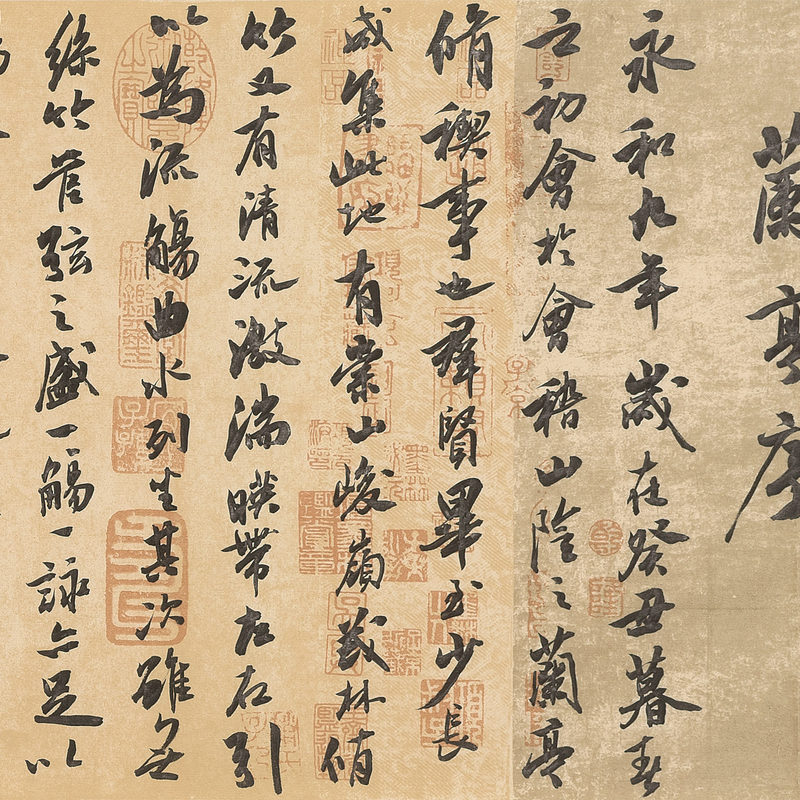 蘭亭序
永和九年歲在癸丑暮春
之初會於會稽山陰之蘭亭
脩禊事也羣賢畢至少長
咸集此地有崇山峻嶺茂林脩
竹又有清流激湍暎帶左右引
以為流觴曲水列坐其次雖無
絲竹管弦之盛一觴一詠亦足以